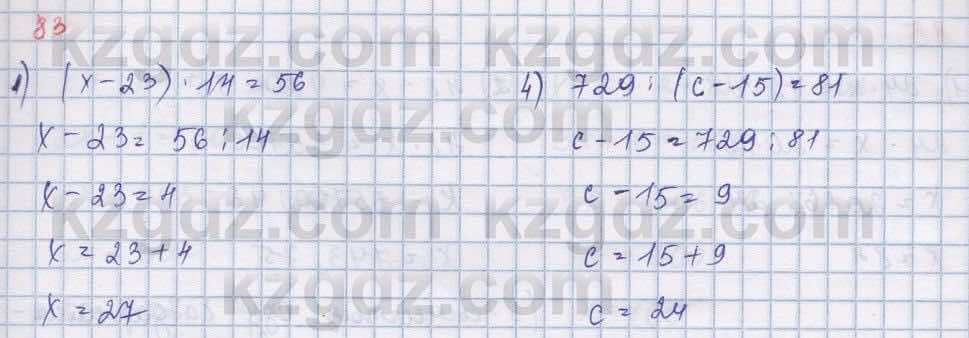 83
1) (x - 23) · 14 = 56
x - 23 = 56 : 14
x - 23 = 4
x = 23 + 4
x = 27
4) 729 : (c - 15) = 81
c - 15 = 729 : 81
c - 15 = 9
c = 15 + 9
c = 24
kzgdz.com
kzgdz.com
kzgdz.com
kzgdz.com